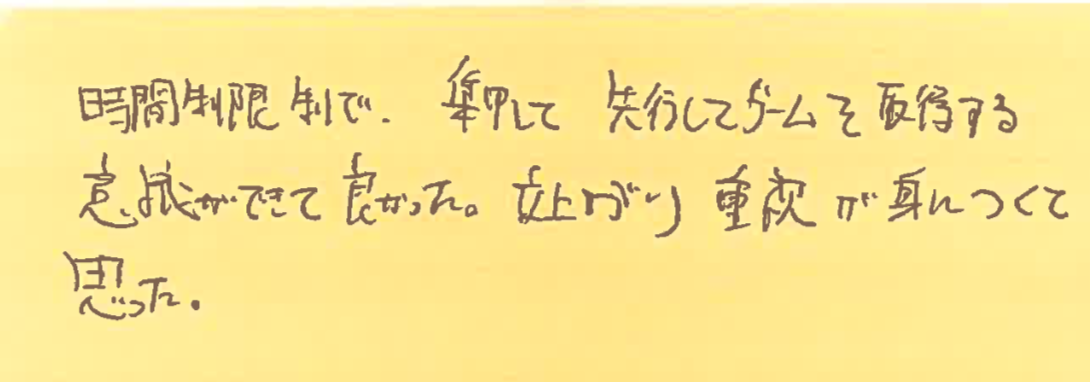 時間制限制で、集中して 先行してゲームを取得する
意識ができて良かった。立上がり重視が身につくて
思った。